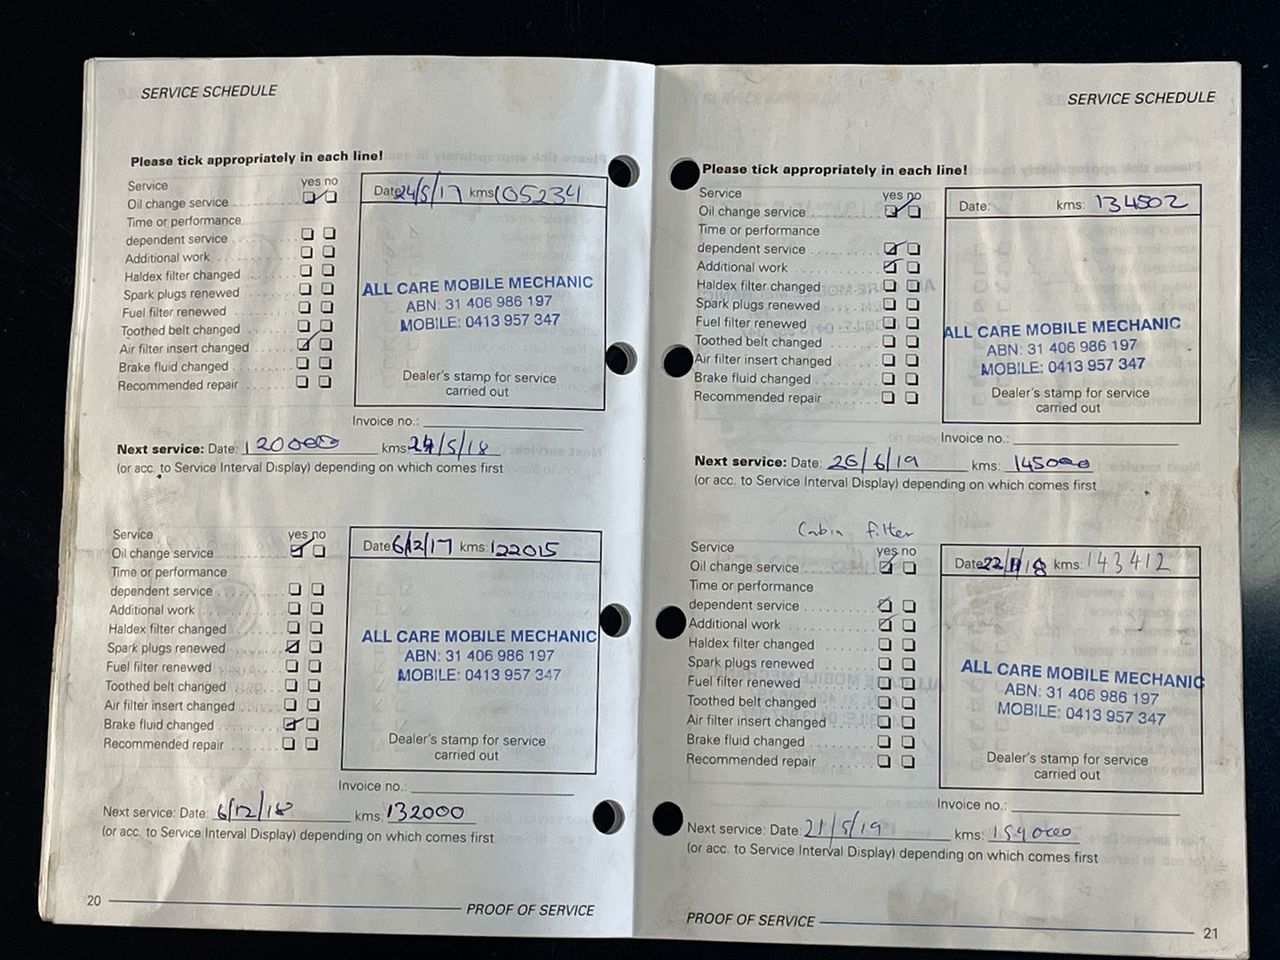 SERVICE SCHEDULE
Please tick appropriately in each line!
Service yes no
Oil change service
Time or performance
dependent service
Additional work
Haldex filter changed
Spark plugs renewed
Fuel filter renewed
Toothed belt changed
Air filter insert changed
Brake fluid changed
Recommended repair
Date 24/5/17 kms: 105234
ALL CARE MOBILE MECHANIC
ABN: 31 406 986 197
MOBILE: 0413 957 347
Dealer's stamp for service
carried out
Invoice no.:
Next service: Date: 120000 kms: 24/5/18
(or acc. to Service Interval Display) depending on which comes first
Service yes no
Oil change service
Time or performance
dependent service
Additional work
Haldex filter changed
Spark plugs renewed
Fuel filter renewed
Toothed belt changed
Air filter insert changed
Brake fluid changed
Recommended repair
Date 6/12/17 kms: 122015
ALL CARE MOBILE MECHANIC
ABN: 31 406 986 197
MOBILE: 0413 957 347
Dealer's stamp for service
carried out
Invoice no.:
Next service: Date: 6/12/18 kms: 132000
(or acc. to Service Interval Display) depending on which comes first
20
PROOF OF SERVICE
SERVICE SCHEDULE
Please tick appropriately in each line!
Service yes no
Oil change service
Time or performance
dependent service
Additional work
Haldex filter changed
Spark plugs renewed
Fuel filter renewed
Toothed belt changed
Air filter insert changed
Brake fluid changed
Recommended repair
Date: kms: 134502
ALL CARE MOBILE MECHANIC
ABN: 31 406 986 197
MOBILE: 0413 957 347
Dealer's stamp for service
carried out
Invoice no.:
Next service: Date: 26/6/19 kms: 145000
(or acc. to Service Interval Display) depending on which comes first
Cabin filter
Service yes no
Oil change service
Time or performance
dependent service
Additional work
Haldex filter changed
Spark plugs renewed
Fuel filter renewed
Toothed belt changed
Air filter insert changed
Brake fluid changed
Recommended repair
Date kms: 143412
ALL CARE MOBILE MECHANIC
ABN: 31 406 986 197
MOBILE: 0413 957 347
Dealer's stamp for service
carried out
Invoice no.:
Next service: Date: 21/5/19 kms:
(or acc. to Service Interval Display) depending on which comes first
PROOF OF SERVICE
21